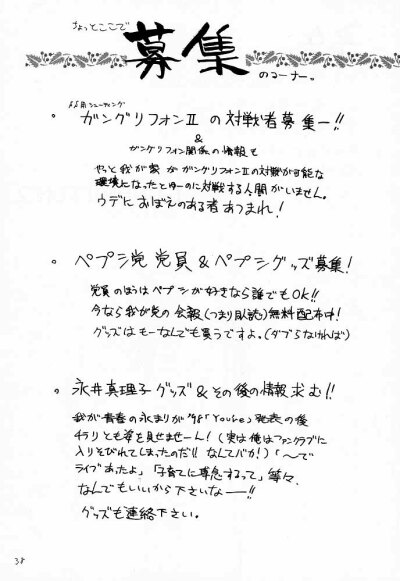 ちょっとここで
募集
のコーナー。
ガングリフォンⅡの対戦者募集ー!!
&
ガングリフォン関係の情報も
やっと我が家がガングリフォンⅡの対戦が可能な
環境になったとゆーのに対戦する人間がいません。
ウデにおぼえのある者あつまれ!
ペプシ党党員&ペプシグッズ募集!
党員のほうはペプシが好きなら誰でもOK!!
今なら我が党の会報(つまり既読)無料配布中!
グッズはもーなんでも買うですよ。(ダブらなければ)
永井真理子グッズ&その後の情報求む!!
我が青春の永まりが'98「Youre」発表の後
ちりとも姿を見せませーん!(実は俺はファンクラブに
入りそびれてしまったのだ!!なんてバカ!)「〜で
ライブあったよ」「子育てに専念するって」等々、
なんでもいいから下さいなーー!!
グッズも連絡下さい。
38